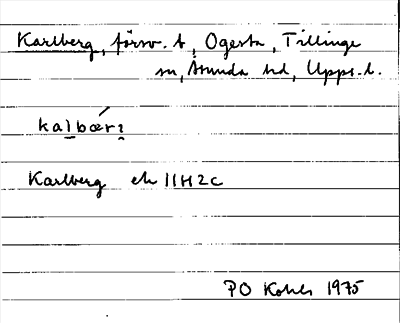 Karlberg, försv. t, Ogesta, Tillinge
sn, Åsunda hd, Upps. l.
kalbǽrɩ
Karlberg ek 11H2c
PO 1975